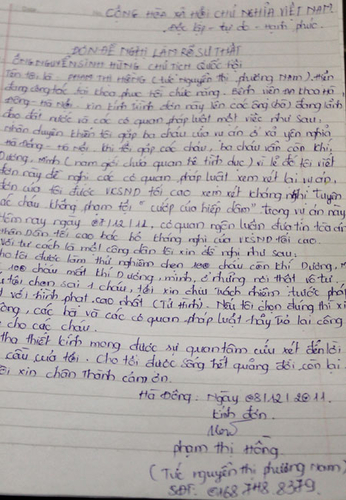 CỘNG HÒA XÃ HỘI CHỦ NGHĨA VIỆT NAM
Độc lập - tự do - hạnh phúc.
ĐƠN ĐỀ NGHỊ LÀM RÕ SỰ THẬT
ÔNG NGUYỄN SINH HÙNG CHỦ TỊCH QUỐC HỘI
Tên tôi là: PHẠM THỊ HỒNG (tức nguyễn thị phương NAM). Hiện
đang công tác tại khoa phục hồi chức năng. Bệnh viện đa khoa Hà
Đông - Hà Nội. Xin kính trình đơn này lên các ông (bà) đang lãnh
đạo đất nước và các cơ quan pháp luật một việc như sau.
nhân duyên khiến tôi gặp ba cháu của vụ án ở xã yên nghĩa
Hà Đông - Hà Nội. khi tôi gặp các cháu, ba cháu vẫn còn khí
Dương. Minh (nam giới chưa quan hệ tình dục) vì lẽ đó tôi viết
đơn này đề nghị các cơ quan pháp luật xem xét lại vụ án.
đơn của tôi được VKSND tối cao xem xét kháng nghị tuyên
các cháu không phạm tội "cướp của hiếp dâm" trong vụ án này
hôm nay ngày 07/12/11, cơ quan ngôn luận đưa tin tòa án
nhân Dân tối cao bác bỏ kháng nghị của VKSND tối cao.
Với tư cách là một công dân tôi xin đề nghị như sau:
cho tôi được làm thử nghiệm chọn 100 cháu còn khí Dương.
100 cháu mất khí Dương. minh, ở những nơi thật vô tư.
tôi chọn sai 1 cháu, tôi xin chịu trách nhiệm trước pháp
với hình phạt cao nhất (Tử hình). Nếu tôi chọn đúng thì xin
ông, các bà và các cơ quan pháp luật hãy trả lại công
cho các cháu.
tha thiết kính mong được sự quan tâm cứu xét đến lời
cầu của tôi. Cho tôi được sống hết quãng đời còn lại
tôi xin chân thành cảm ơn.
Hà Đông. Ngày 08/12/2011.
kính đơn.
phạm thị Hồng
(Tức nguyễn thị phương Nam)
SĐT. 0168 748 8379